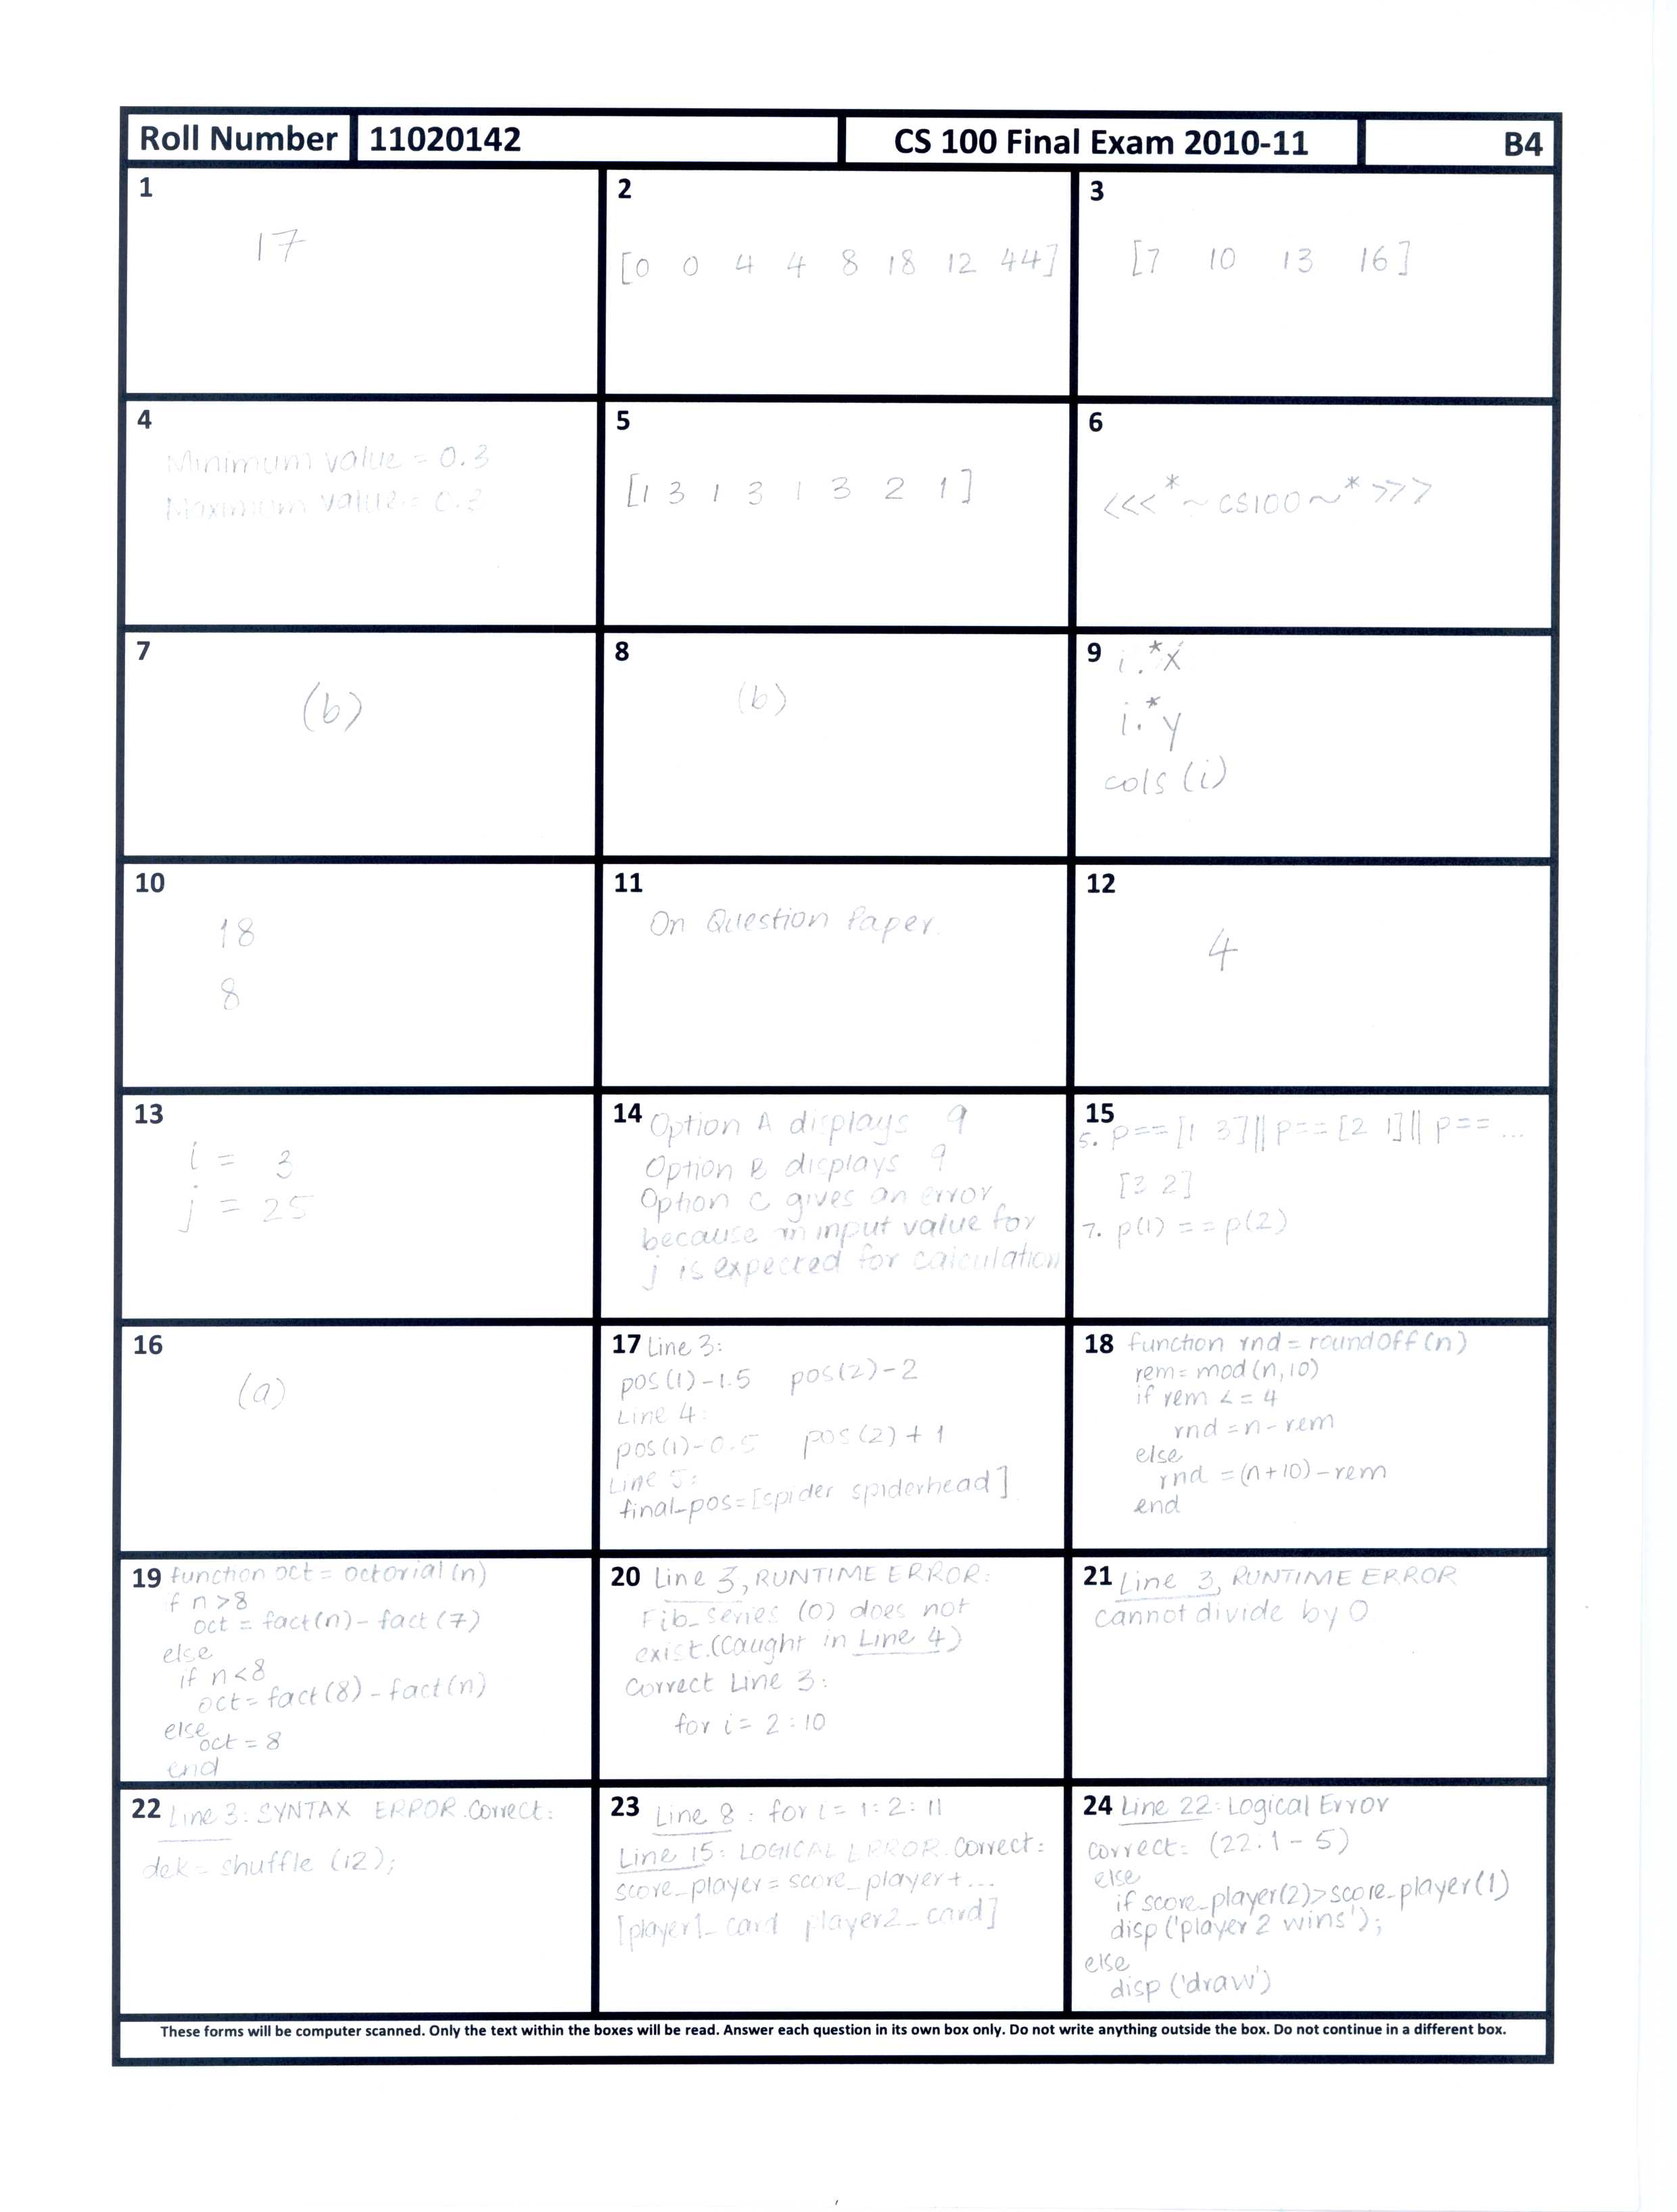 Roll Number 11020142 CS 100 Final Exam 2010-11 B4
1
17
2
[0 0 4 4 8 18 12 44]
3
[7 10 13 16]
4
Minimum value = 0.3
Maximum value = 0.3
5
[1 3 1 3 1 3 2 1]
6
<<<*~CS100~*>>>
7
(b)
8
(b)
9 i.*x
i.*y
cols (i)
10
18
8
11
On Question Paper.
12
4
13
i = 3
j = 25
14 Option A displays 9
Option B displays 9
Option C gives an error
because an input value for
j is expected for calculation
15
5. p==[1 3]||p==[2 1]||p==...
[3 2]
7. p(1)==p(2)
16
(a)
17 Line 3:
pos(1)-1.5 pos(2)-2
Line 4:
pos(1)-0.5 pos(2)+1
Line 5:
final_pos=[spider spiderhead]
18 function rnd=roundoff(n)
rem=mod(n,10)
if rem <= 4
rnd=n-rem
else
rnd=(n+10)-rem
end
19 function oct= octorial(n)
f n>8
oct = fact(n)-fact(7)
else
if n<8
oct=fact(8)-fact(n)
else
oct=8
end
20 Line 3, RUNTIME ERROR:
Fib_series (0) does not
exist.(Caught in Line 4)
Correct Line 3:
for i= 2:10
21 Line 3, RUNTIME ERROR
cannot divide by 0
22 Line 3: SYNTAX ERROR.Correct:
dek= shuffle (12);
23 Line 8: for i= 1:2:11
Line 15: LOGICAL ERROR.Correct:
score_player=score_player+...
[player1_card player2_card]
24 Line 22: Logical Error
correct: (22.1-5)
else
if score_player(2)>score_player(1)
disp('player 2 wins');
else
disp('draw')
These forms will be computer scanned. Only the text within the boxes will be read. Answer each question in its own box only. Do not write anything outside the box. Do not continue in a different box.